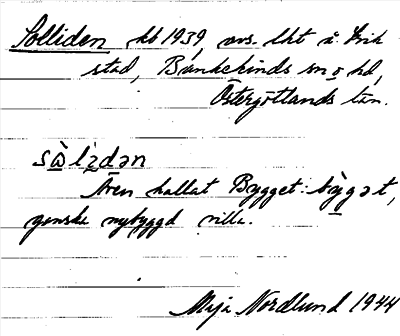 Solliden hb 1939, avs. lht å. Erik-
stad, Bankekinds sn o hd,
Östergötlands län.
sὼlὶdən
Även kallat Bygget: bỳgət,
ganska nybyggd villa.
Maja Nordlund 1944